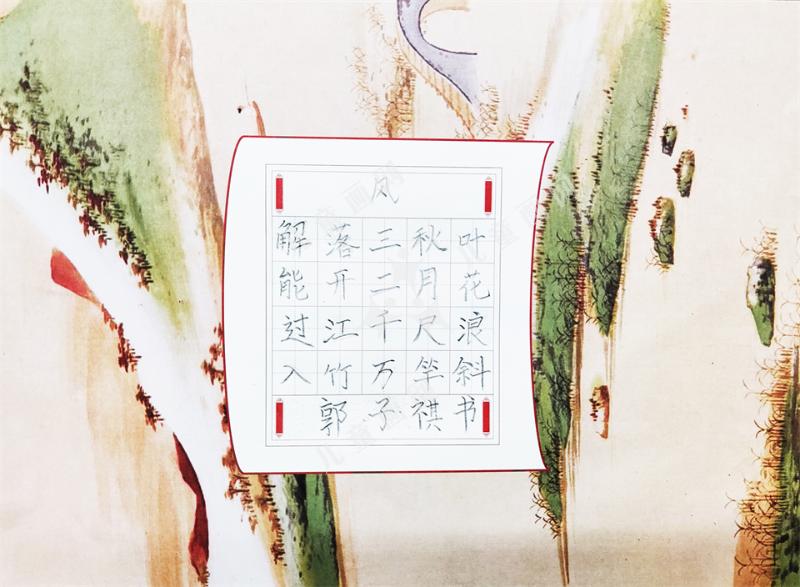 风
解落三秋叶
能开二月花
过江千尺浪
入竹万竿斜
郭子祺书